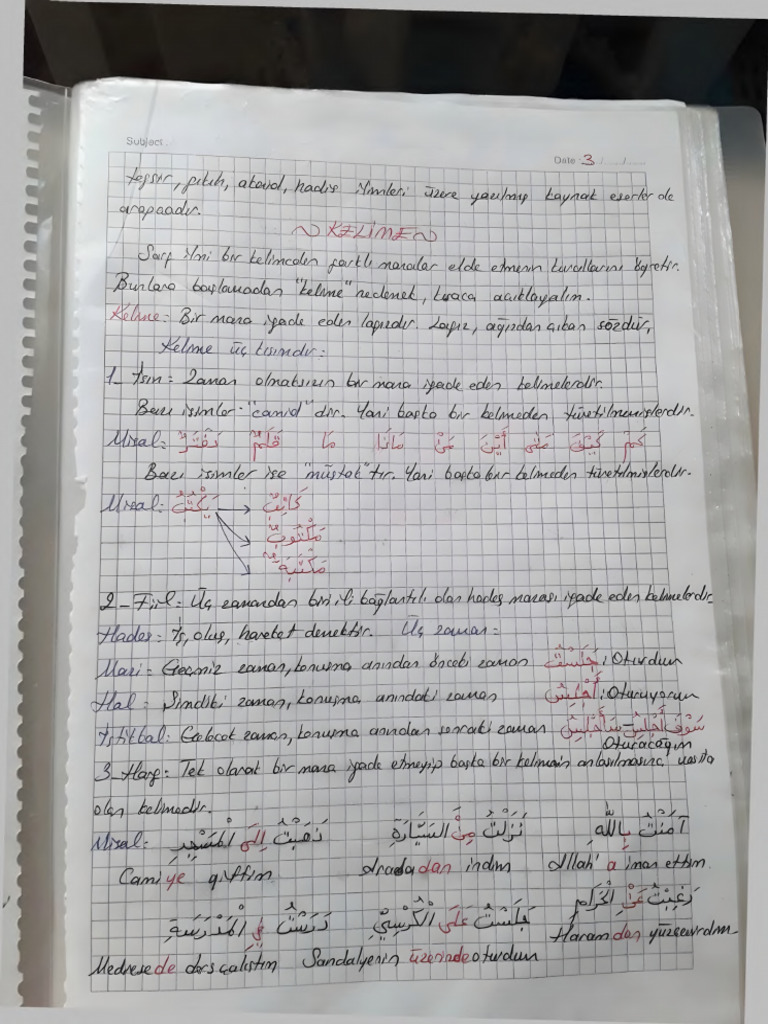 Subject :
Date : 3 / ..... / .....
tefsir, fıkıh, akaid, hadis ilmleri üzere yazılmış kaynak eserler de
arapçadır.
~ KELİME ~
Sarf ilmi bir kelimeden farklı manalar elde etmenin kurallarını öğretir.
Bunlara başlamadan "kelime" nedemek, kısaca açıklayalım.
Kelime = Bir mana ifade eden lafızdır. Lafız, ağızdan çıkan sözdür,
Kelime üç kısımdır :
1- İsim = Zaman olmaksızın bir mana ifade eden kelimelerdir.
Bazı isimler "camid" dir. Yani başka bir kelimeden türetilmemişlerdir.
Misal: كَمْ كَيْفَ مَتَى أَيْنَ مَنْ مَاذَا مَا قَلَمٌ دَفْتَرٌ
Bazı isimler ise "müştak" tır. Yani başka bir kelimeden türetilmişlerdir.
Misal: يَكْتُبُ → كَاتِبٌ
مَكْتُوبٌ
مَكْتَبَةٌ
2- Fiil = Üç zamandan biri ile bağlantılı olan hades manası ifade eden kelimelerdir.
Hades = İş, oluş, hareket demektir. Üç zaman =
Mazi = Geçmiş zaman, konuşma anından önceki zaman جَلَسْتُ : Oturdum
Hal = Şimdiki zaman, konuşma anındaki zaman أَجْلِسُ : Oturuyorum
İstikbal : Gelecek zaman, konuşma anından sonraki zaman سَوْفَ أَجْلِسُ - سَأَجْلِسُ
Oturacağım
3- Harf = Tek olarak bir mana ifade etmeyip başka bir kelimenin anlaşılmasına vasıta
olan kelimedir.
Misal: ذَهَبْتُ إِلَى الْمَسْجِدِ نَزَلْتُ مِنَ السَّيَّارَةِ آمَنْتُ بِاللهِ
Camiye gittim Arabadan indim Allah'a iman ettim.
دَرَسْتُ فِي الْمَدْرَسَةِ جَلَسْتُ عَلَى الْكُرْسِيِّ رَغِبْتُ عَنِ الْحَرَامِ
Medresede ders çalıştım Sandalyenin üzerinde oturdum Haramdan yüzçevirdim